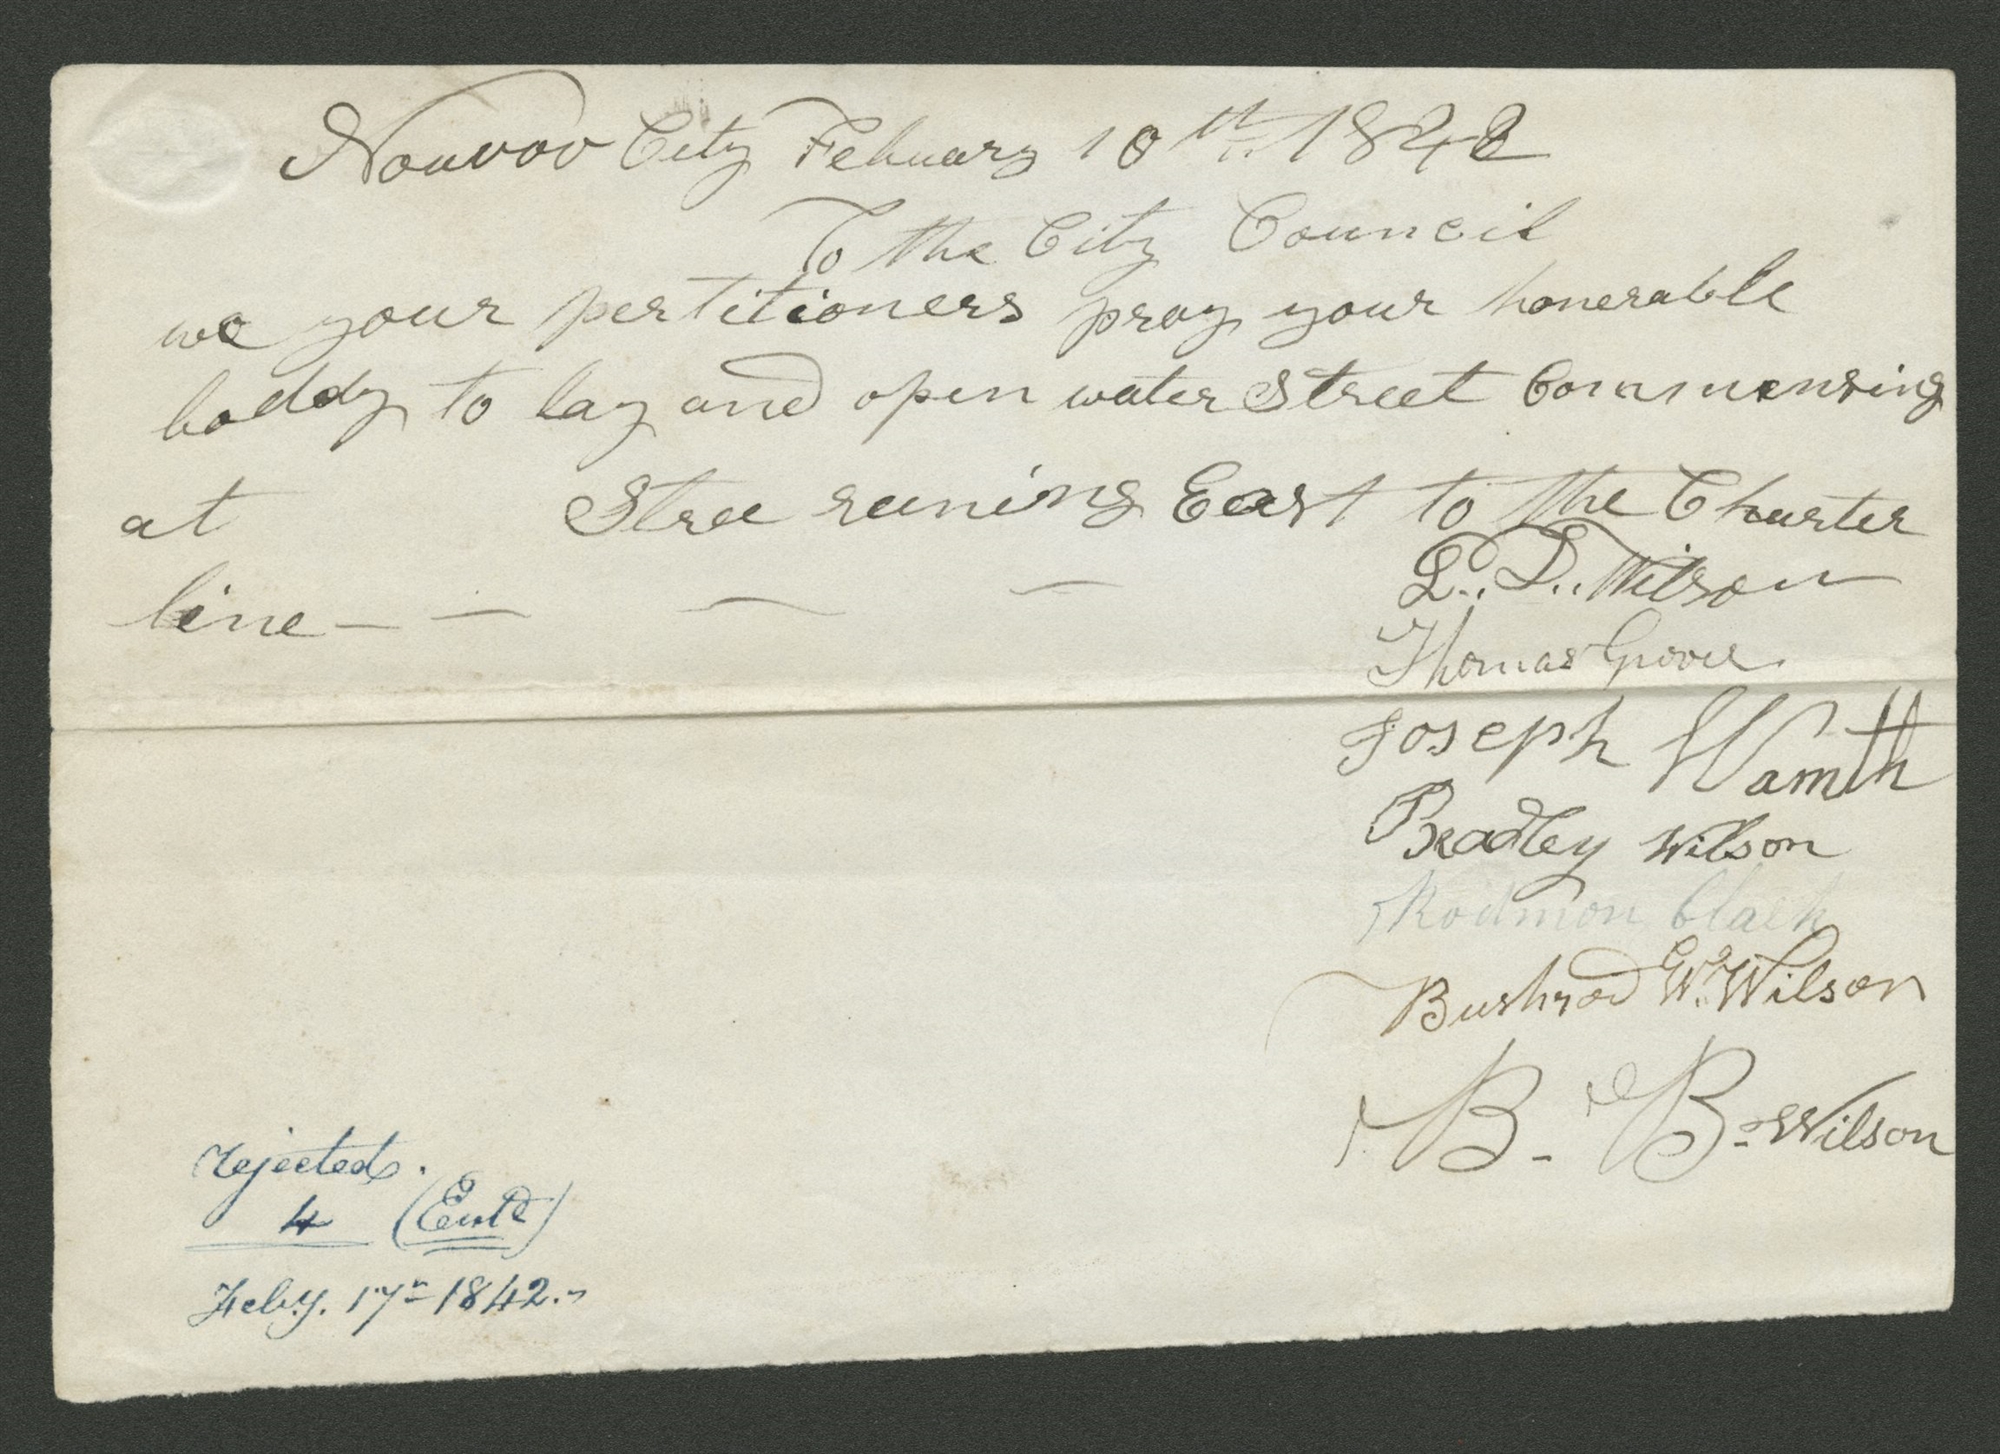 Nouvoo City Febuary 10th. 1842
To the City Council
we your pertitioners pray your honerable
boddy to lay and open water Street Commensing
at Stree runing East to the Charter
line — — — —
L. D. Wilson
Thomas Grover
Joseph Wamth
Bradley Wilson
Rodmon Clark
Bushrod W. Wilson
B. B. Wilson
rejected.
4 (Entd)
Feby. 17th 1842.